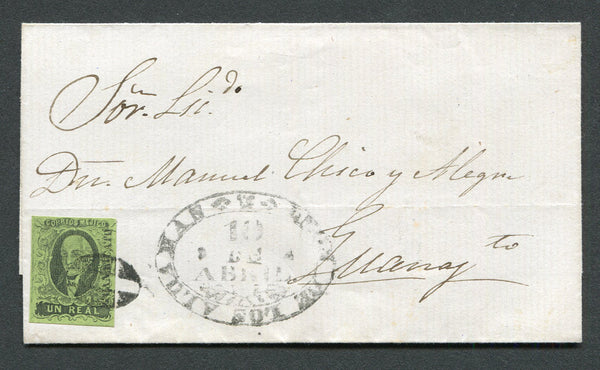 Sōr. Lic.do
Dn. Manuel Chico y Alegre
Guanaj to
CORREOS MEXICO
UN REAL
LOS ALDAMAS
10
DE
ABRIL